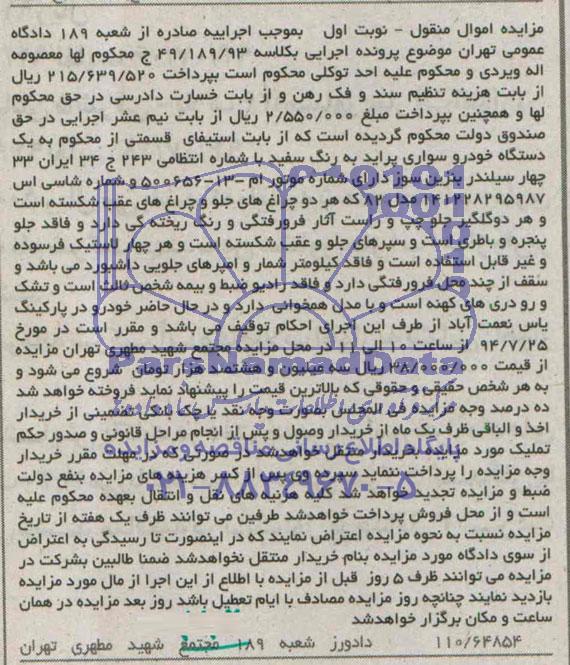 مزایده اموال منقول - نوبت اول بموجب اجراییه صادره از شعبه ۱۸۹ دادگاه
عمومی تهران موضوع پرونده اجرایی بکلاسه ۴۹/۱۸۹/۹۳ ج محکوم لها معصومه
اله ویردی و محکوم علیه احد توکلی محکوم است بپرداخت ۲۱۵/۶۳۹/۵۲۰ ریال
از بابت هزینه تنظیم سند و فک رهن و از بابت خسارت دادرسی در حق محکوم
لها و همچنین بپرداخت مبلغ ۲/۵۵۰/۰۰۰ ریال از بابت نیم عشر اجرایی در حق
صندوق دولت محکوم گردیده است که از بابت استیفای قسمتی از محکوم به یک
دستگاه خودرو سواری پراید به رنگ سفید با شماره انتظامی ۲۴۳ ج ۳۴ ایران ۳۳
چهار سیلندر بنزین سوز دارای شماره موتور ام -۱۳-۵۰۰۶۵۶ و شماره شاسی اس
۱۴۱۲۲۸۲۹۵۹۸۷ مدل ۸۲ که هر دو چراغ های جلو و چراغ های عقب شکسته است
و هر دوگلگیر جلو چپ و راست آثار فرورفتگی و رنگ ریختگی دارد و فاقد جلو
پنجره و باطری است و سپرهای جلو و عقب شکسته است و هر چهار لاستیک فرسوده
و غیر قابل استفاده است و فاقد کیلومتر شمار و امپرهای جلویی داشبورد می باشد و
سقف از چند محل فرورفتگی دارد و فاقد رادیو ضبط و بیمه شخص ثالث است و تشک
و رو دری های کهنه است و با مدل همخوانی دارد و در حال حاضر خودرو در پارکینگ
یاس نعمت آباد از طرف این اجرای احکام توقیف می باشد و مقرر است در مورخ
۹۴/۷/۲۵ از ساعت ۱۰ الی ۱۱ در محل مزایده مجتمع شهید مطهری تهران مزایده
از قیمت ۳۸/۰۰۰/۰۰۰ ریال سه میلیون و هشتصد هزار تومان شروع می شود و
به هر شخص حقیقی و حقوقی که بالاترین قیمت را پیشنهاد نماید فروخته خواهد شد
ده درصد وجه مزایده فی المجلس بصورت وجه نقد یا چک بانکی تضمینی از خریدار
اخذ و الباقی ظرف یک ماه از خریدار وصول و پس از انجام مراحل قانونی و صدور حکم
تملیک مورد مزایده بخریدار منتقل خواهدشد در صورتی که در مهلت مقرر خریدار
وجه مزایده را پرداخت ننماید سپرده وی پس از کسر هزینه های مزایده بنفع دولت
ضبط و مزایده تجدید خواهد شد کلیه هزینه های نقل و انتقال بعهده محکوم علیه
است و از محل فروش پرداخت خواهدشد طرفین می توانند ظرف یک هفته از تاریخ
مزایده نسبت به نحوه مزایده اعتراض نمایند که در اینصورت تا رسیدگی به اعتراض
از سوی دادگاه مورد مزایده بنام خریدار منتقل نخواهدشد ضمنا طالبین بشرکت در
مزایده می توانند ظرف ۵ روز قبل از مزایده با اطلاع از این اجرا از مال مورد مزایده
بازدید نمایند چنانچه روز مزایده مصادف با ایام تعطیل باشد روز بعد مزایده در همان
ساعت و مکان برگزار خواهدشد
۱۱۰/۶۴۸۵۴ دادورز شعبه ۱۸۹ مجتمع شهید مطهری تهران
ParsNamadData
پایگاه اطلاع رسانی مناقصه و مزایده
۰۲۱-۸۸۳۴۹۶۷۰-۵